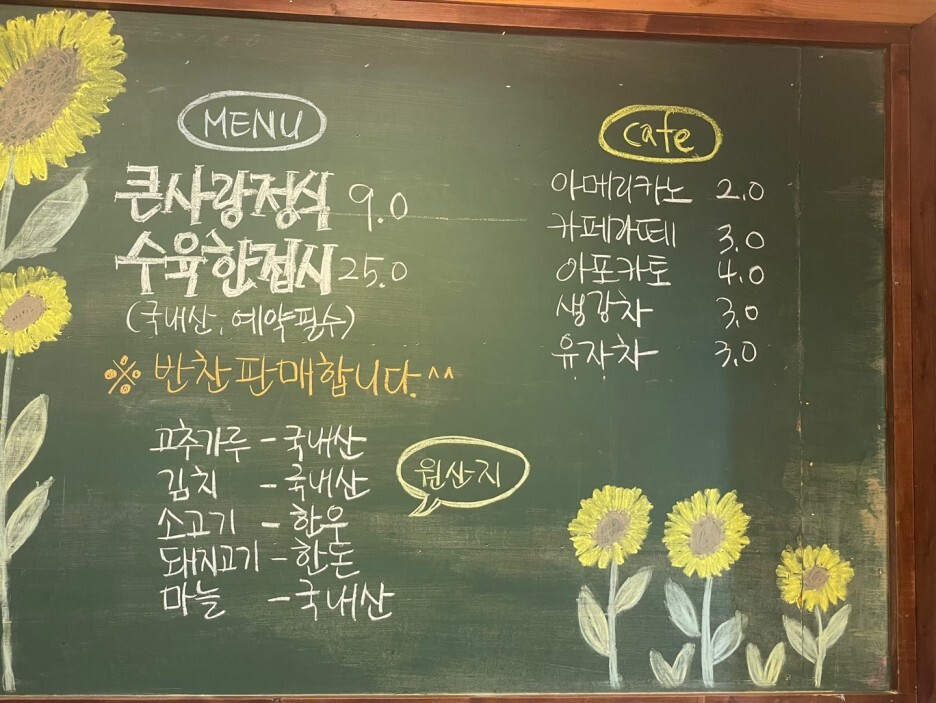 MENU
큰사랑정식 9.0
수육한접시 25.0
(국내산, 예약필수)
※ 반찬판매합니다.^^
고추가루 - 국내산
김치 - 국내산
소고기 - 한우
돼지고기 - 한돈
마늘 - 국내산
원산지
cafe
아메리카노 2.0
카페라떼 3.0
아포카토 4.0
생강차 3.0
유자차 3.0